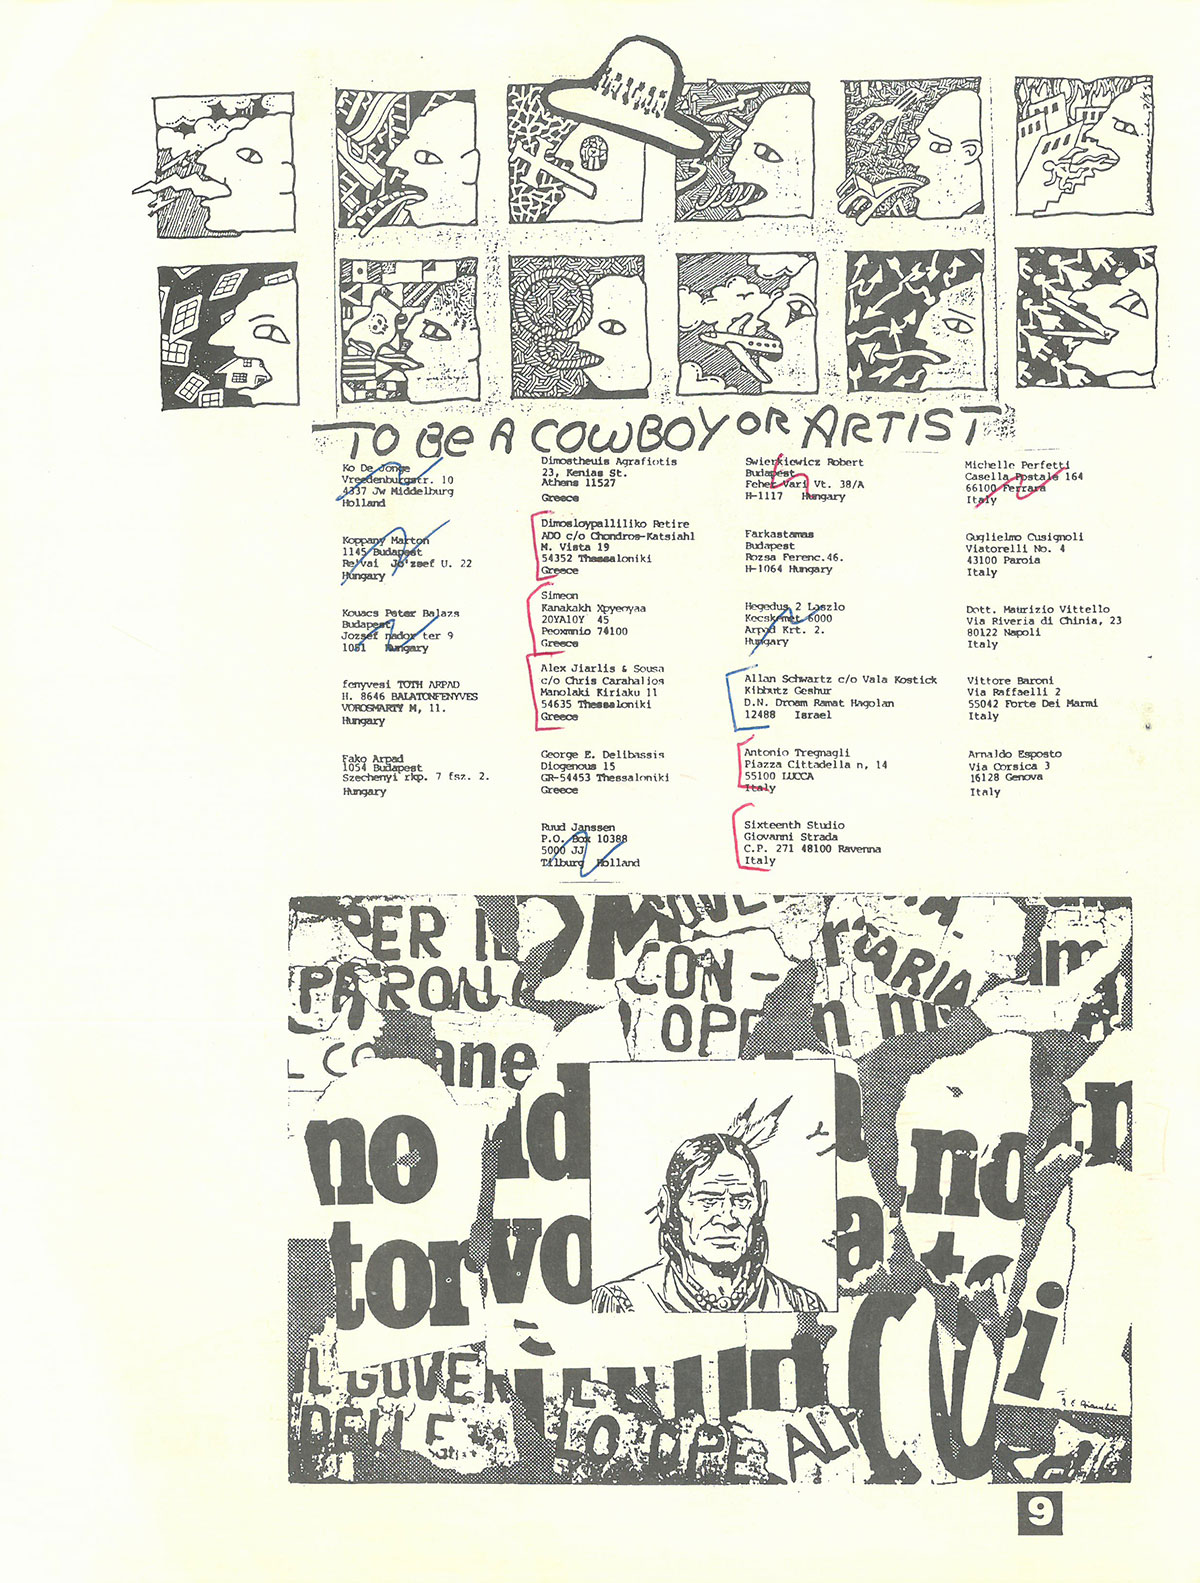 TO BE A COWBOY OR ARTIST
Ko De Jonge
Vreedenburgstr. 10
4337 Jw Middelburg
Holland
Koppany Marton
1145 Budapest
Re'vai Jo'zsef U. 22
Hungary
Kouacs Peter Balazs
Budapest
Jozsef nador ter 9
1051 Hungary
fenyvesi TOTH ARPAD
H. 8646 BALATONFENYVES
VOROSMARTY M, 11.
Hungary
Fako Arpad
1054 Budapest
Szechenyi rkp. 7 fsz. 2.
Hungary
Dimostheuis Agrafiotis
23, Kenias St.
Athens 11527
Greece
Dimosloypalliliko Retire
ADO c/o Chondros-Katsiahl
M. Vista 19
54352 Thessaloniki
Greece
Simeon
Kanakakh Xpyeoyaa
20YA10Y 45
Peoxmnio 74100
Greece
Alex Jiarlis & Sousa
c/o Chris Carahalios
Manolaki Kiriaku 11
54635 Thessaloniki
Greece
George E. Delibassis
Diogenous 15
GR-54453 Thessaloniki
Greece
Ruud Janssen
P.O. Box 10388
5000 JJ
Tilburg Holland
Swierkiewicz Robert
Budapest
Feher Vari Vt. 38/A
H-1117 Hungary
Farkastamas
Budapest
Rozsa Ferenc.46.
H-1064 Hungary
Hegedus 2 Laszlo
Kecskemet 6000
Arpad Krt. 2.
Hungary
Allan Schwartz c/o Vala Kostick
Kibbutz Geshur
D.N. Droam Ramat Hagolan
12488 Israel
Antonio Tregnagli
Piazza Cittadella n, 14
55100 LUCCA
Italy
Sixteenth Studio
Giovanni Strada
C.P. 271 48100 Ravenna
Italy
Michelle Perfetti
Casella Postale 164
66100 Ferrara
Italy
Guglielmo Cusignoli
Viatorelli No. 4
43100 Paroia
Italy
Dott. Maurizio Vittello
Via Riveria di Chinia, 23
80122 Napoli
Italy
Vittore Baroni
Via Raffaelli 2
55042 Forte Dei Marmi
Italy
Arnaldo Esposto
Via Corsica 3
16128 Genova
Italy
PER IL
PATRON
CON-
OPE
TARIA
ane
no
no
tor
vo
IL GOVER
DELLE
LO OPE
ALI
9